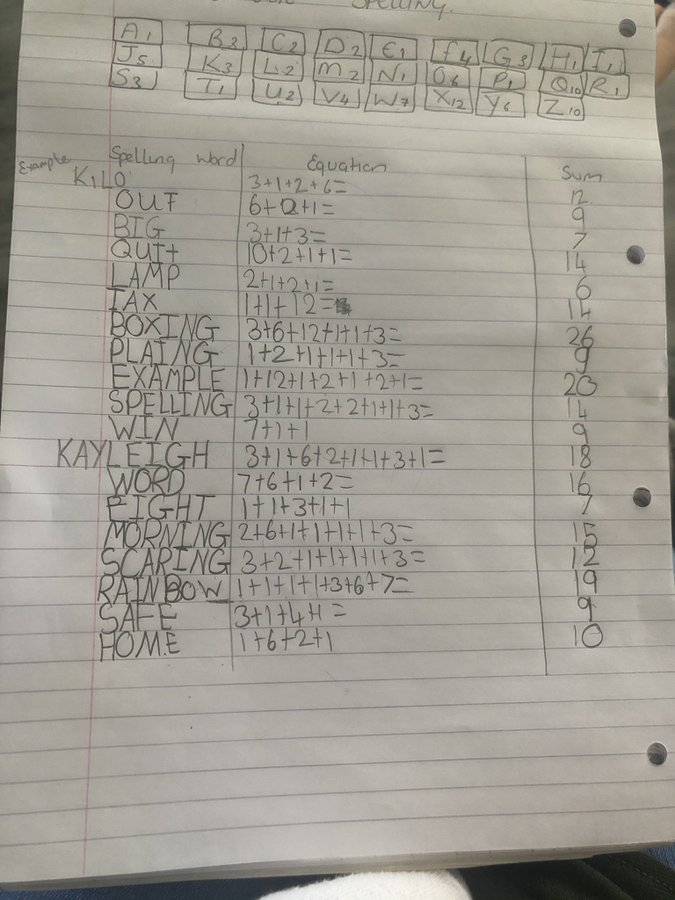 Spelling.
A1 B3 C2 D2 E1 F4 G3 H1 I1
J5 K3 L2 M2 N1 O6 P1 Q10 R1
S3 T1 U2 V4 W7 X12 Y6 Z10
Example Spelling word Equation Sum
KILO 3+1+2+6= 12
OUT 6+2+1= 9
BIG 3+1+3= 7
QUIt 10+2+1+1= 14
LAMP 2+1+2+1= 6
TAX 1+1+12= 14
BOXING 3+6+12+1+1+3= 26
PLAING 1+2+1+1+1+3= 9
EXAMPLE 1+12+1+2+1+2+1= 20
SPELLING 3+1+1+2+2+1+1+3= 14
WIN 7+1+1 9
KAYLEIGH 3+1+6+2+1+1+3+1= 18
WORD 7+6+1+2= 16
EIGHT 1+1+3+1+1 7
MORNING 2+6+1+1+1+1+3= 15
SCARING 3+2+1+1+1+1+3= 12
RAINBOW 1+1+1+1+3+6+7= 19
SAFE 3+1+4+1= 9
HOME 1+6+2+1 10